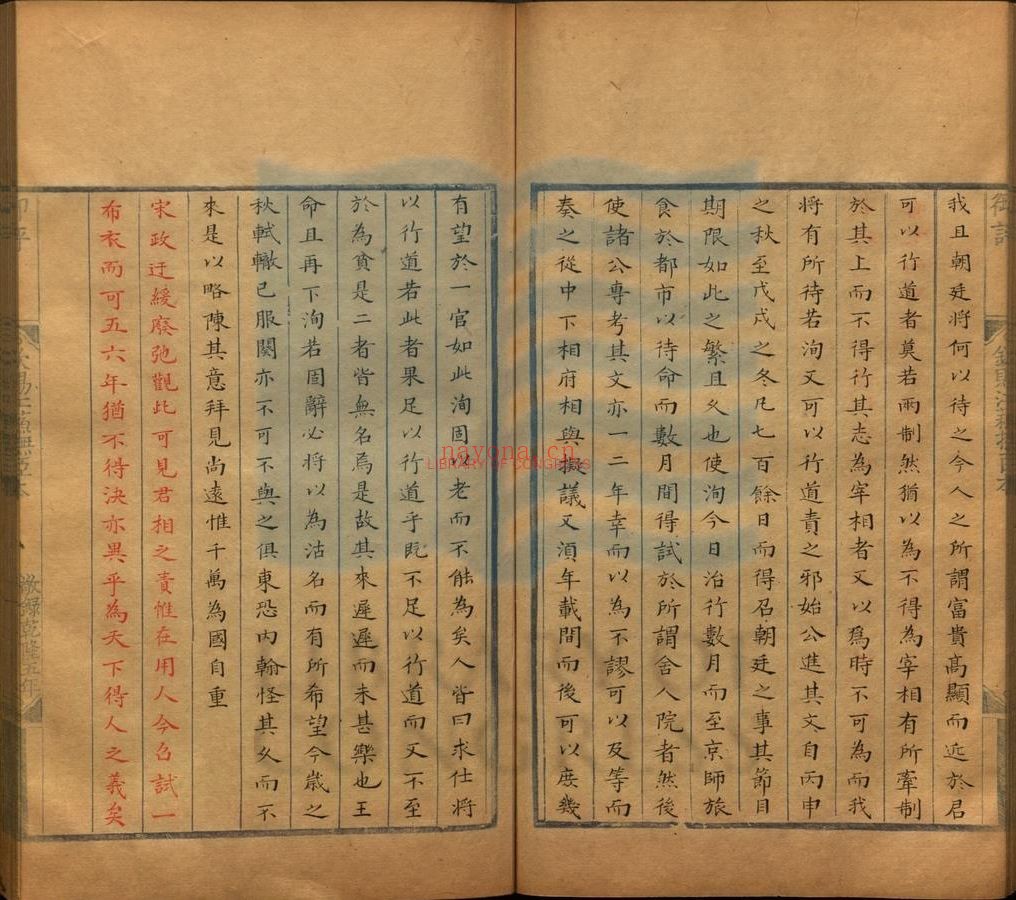 我且朝廷將何以待之今人之所謂富貴高顯而近於君
可以行道者莫若兩制然猶以為不得為宰相有所牽制
於其上而不得行其志為宰相者又以爲時不可為而我
將有所待若洵又可以行道責之邪始公進其文自丙申
之秋至戊戌之冬凡七百餘日而得召朝廷之事其節目
期限如此之繁且久也使洵今日治行數月而至京師旅
食於都市以待命而數月間得試於所謂舍人院者然後
使諸公專考其文亦一二年幸而以為不謬可以及等而
奏之從中下相府相與擬議又湏年載間而後可以庶幾
有望於一官如此洵固以老而不能為矣人皆曰求仕將
以行道若此者果足以行道乎既不足以行道而又不至
於為貧是二者皆無名焉是故其來遲遲而未甚樂也王
命且再下洵若固辭必將以為沽名而有所希望今歲之
秋軾轍已服闋亦不可不與之俱東恐内翰怪其久而不
來是以略陳其意拜見尚遠惟千萬為國自重
宋政迂緩廢弛觀此可見君相之責惟在用人今召試一
布衣而可五六年猶不得決亦異乎為天下得人之義矣
敬録乾隆五年
御評
nayona.cn
LIBRARY OF CONGRESS